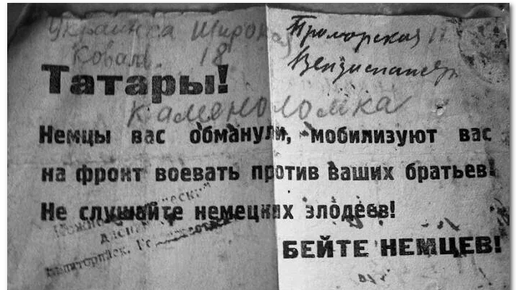 Украинка Широкая
Ковал. 18
Приморская 11
Татары!
Каменоломка
Немцы вас обманули, мобилизуют вас
на фронт воевать против ваших братьев!
Не слушайте немецких злодеев!
БЕЙТЕ НЕМЦЕВ!